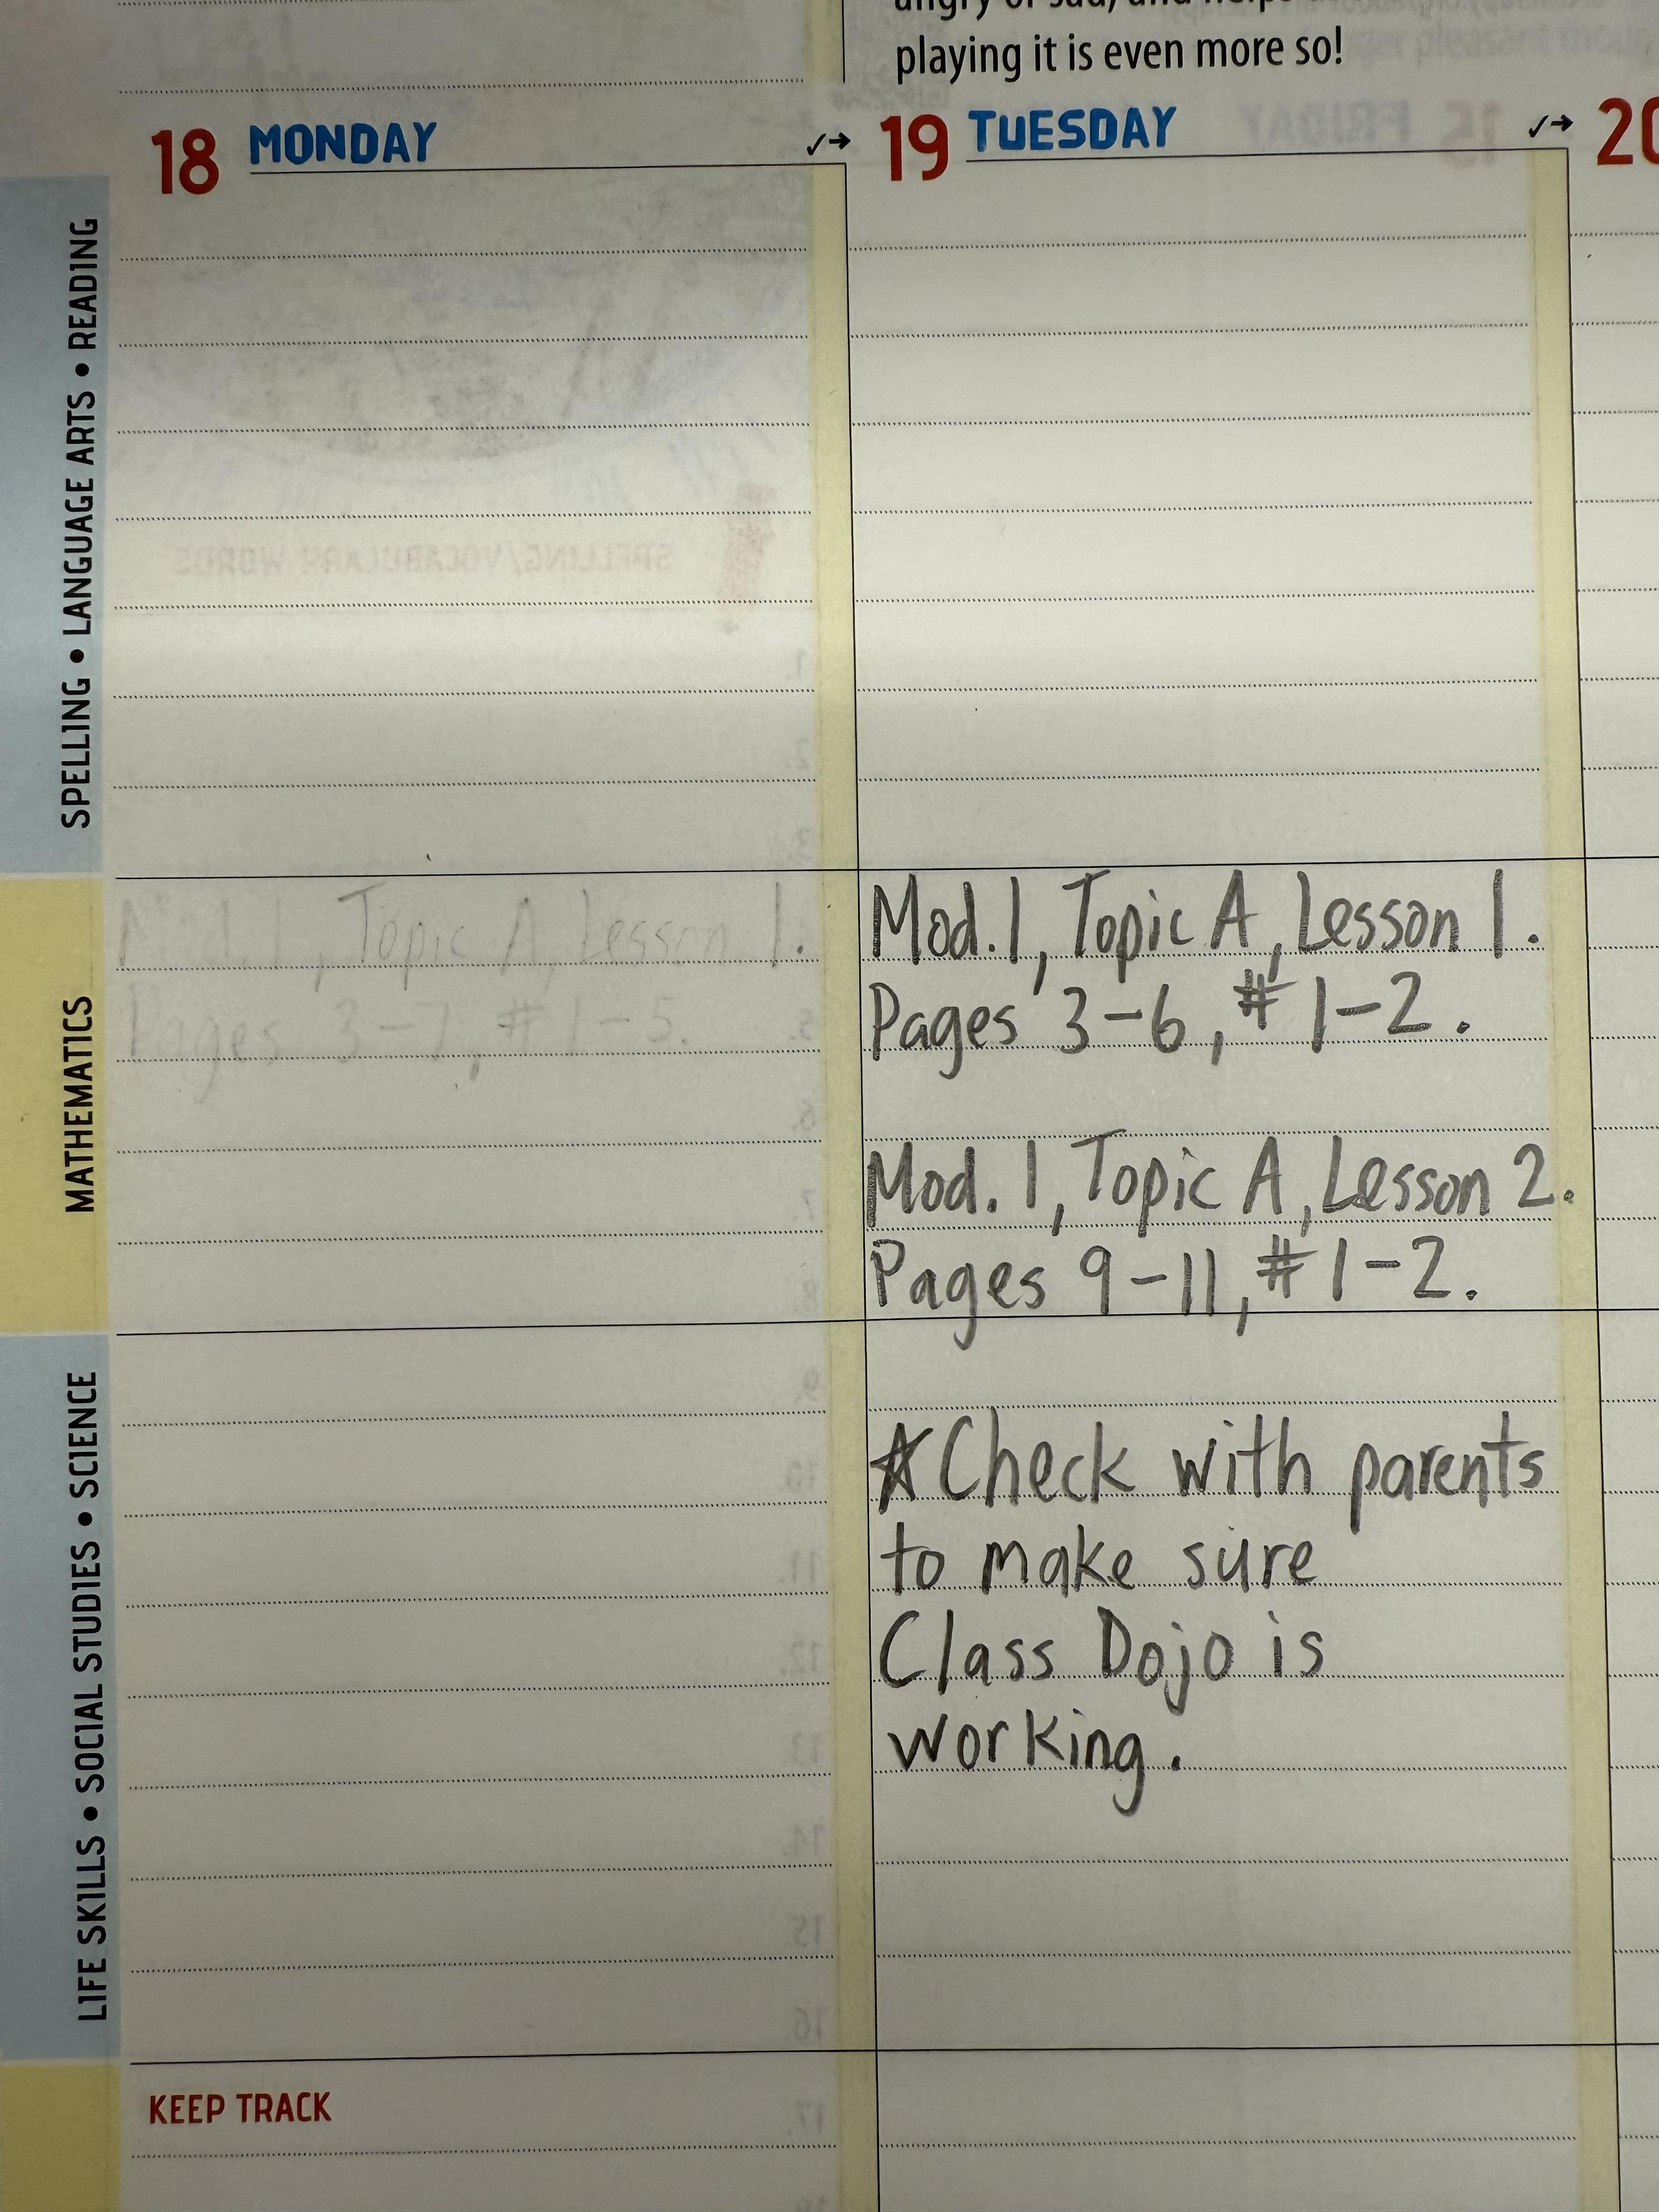 playing it is even more so!
18 MONDAY
19 TUESDAY
20
SPELLING • LANGUAGE ARTS • READING
MATHEMATICS
Mod. 1, Topic A, Lesson 1.
Pages 3-7, #1-5.
Mod. 1, Topic A, Lesson 1.
Pages 3-6, #1-2.
Mod. 1, Topic A, Lesson 2.
Pages 9-11, #1-2.
LIFE SKILLS • SOCIAL STUDIES • SCIENCE
☆Check with parents
to make sure
Class Dojo is
working.
KEEP TRACK